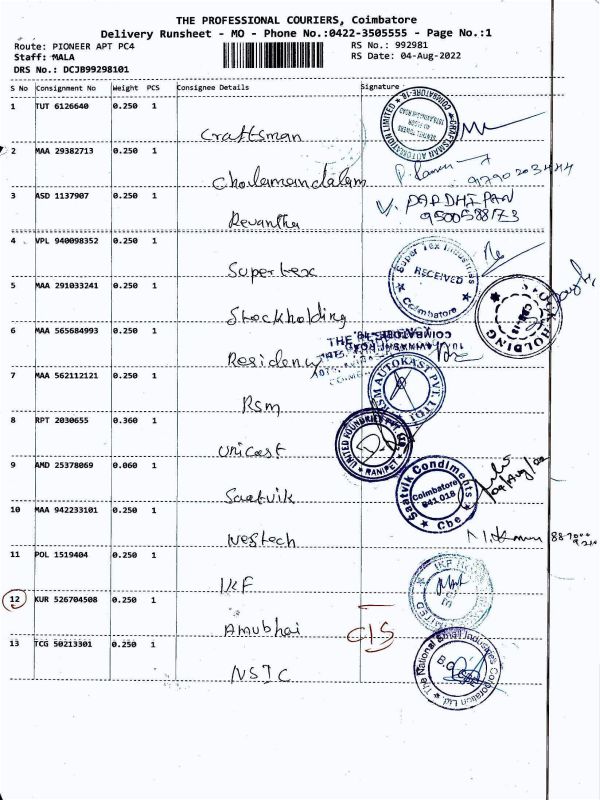 THE PROFESSIONAL COURIERS, Coimbatore
Delivery Runsheet - MO - Phone No.:0422-3505555 - Page No.:1
Route: PIONEER APT PC4 RS No.: 992981
Staff: MALA RS Date: 04-Aug-2022
DRS No.: DCJB99298101
S No Consignment No Weight PCS Consignee Details Signature
1 TUT 6126640 0.250 1
Craftsman
CRAFTSMAN AUTOMATION LIMITED
COIMBATORE-18
2 MAA 29382713 0.250 1
Cholamandalam
3 ASD 1137907 0.250 1
V. PARDHIPAN
Revantha
4 VPL 940098352 0.250 1
Supertex
Super Tex Industries
RECEIVED
Coimbatore
5 MAA 291033241 0.250 1
Stockholding
HOLDING
6 MAA 565684993 0.250 1
Residency
7 MAA 562112121 0.250 1
RSM
RSM AUTOKAST PVT. LTD
8 RPT 2030655 0.360 1
Unicast
UNITED FOUNDRIES PVT. LTD.
RANIPET
9 AMD 25378069 0.060 1
Saatvik
Saatvik Condiments
Coimbatore
641 018
Cbe
04/Aug/22
10 MAA 942233101 0.250 1
Westech
11 POL 1519404 0.250 1
IKF
IKF
12 KUR 526704508 0.250 1
Anubhai
CTS
13 TCG 50213301 0.250 1
NSIC
The National Small Industries Corporation Ltd.